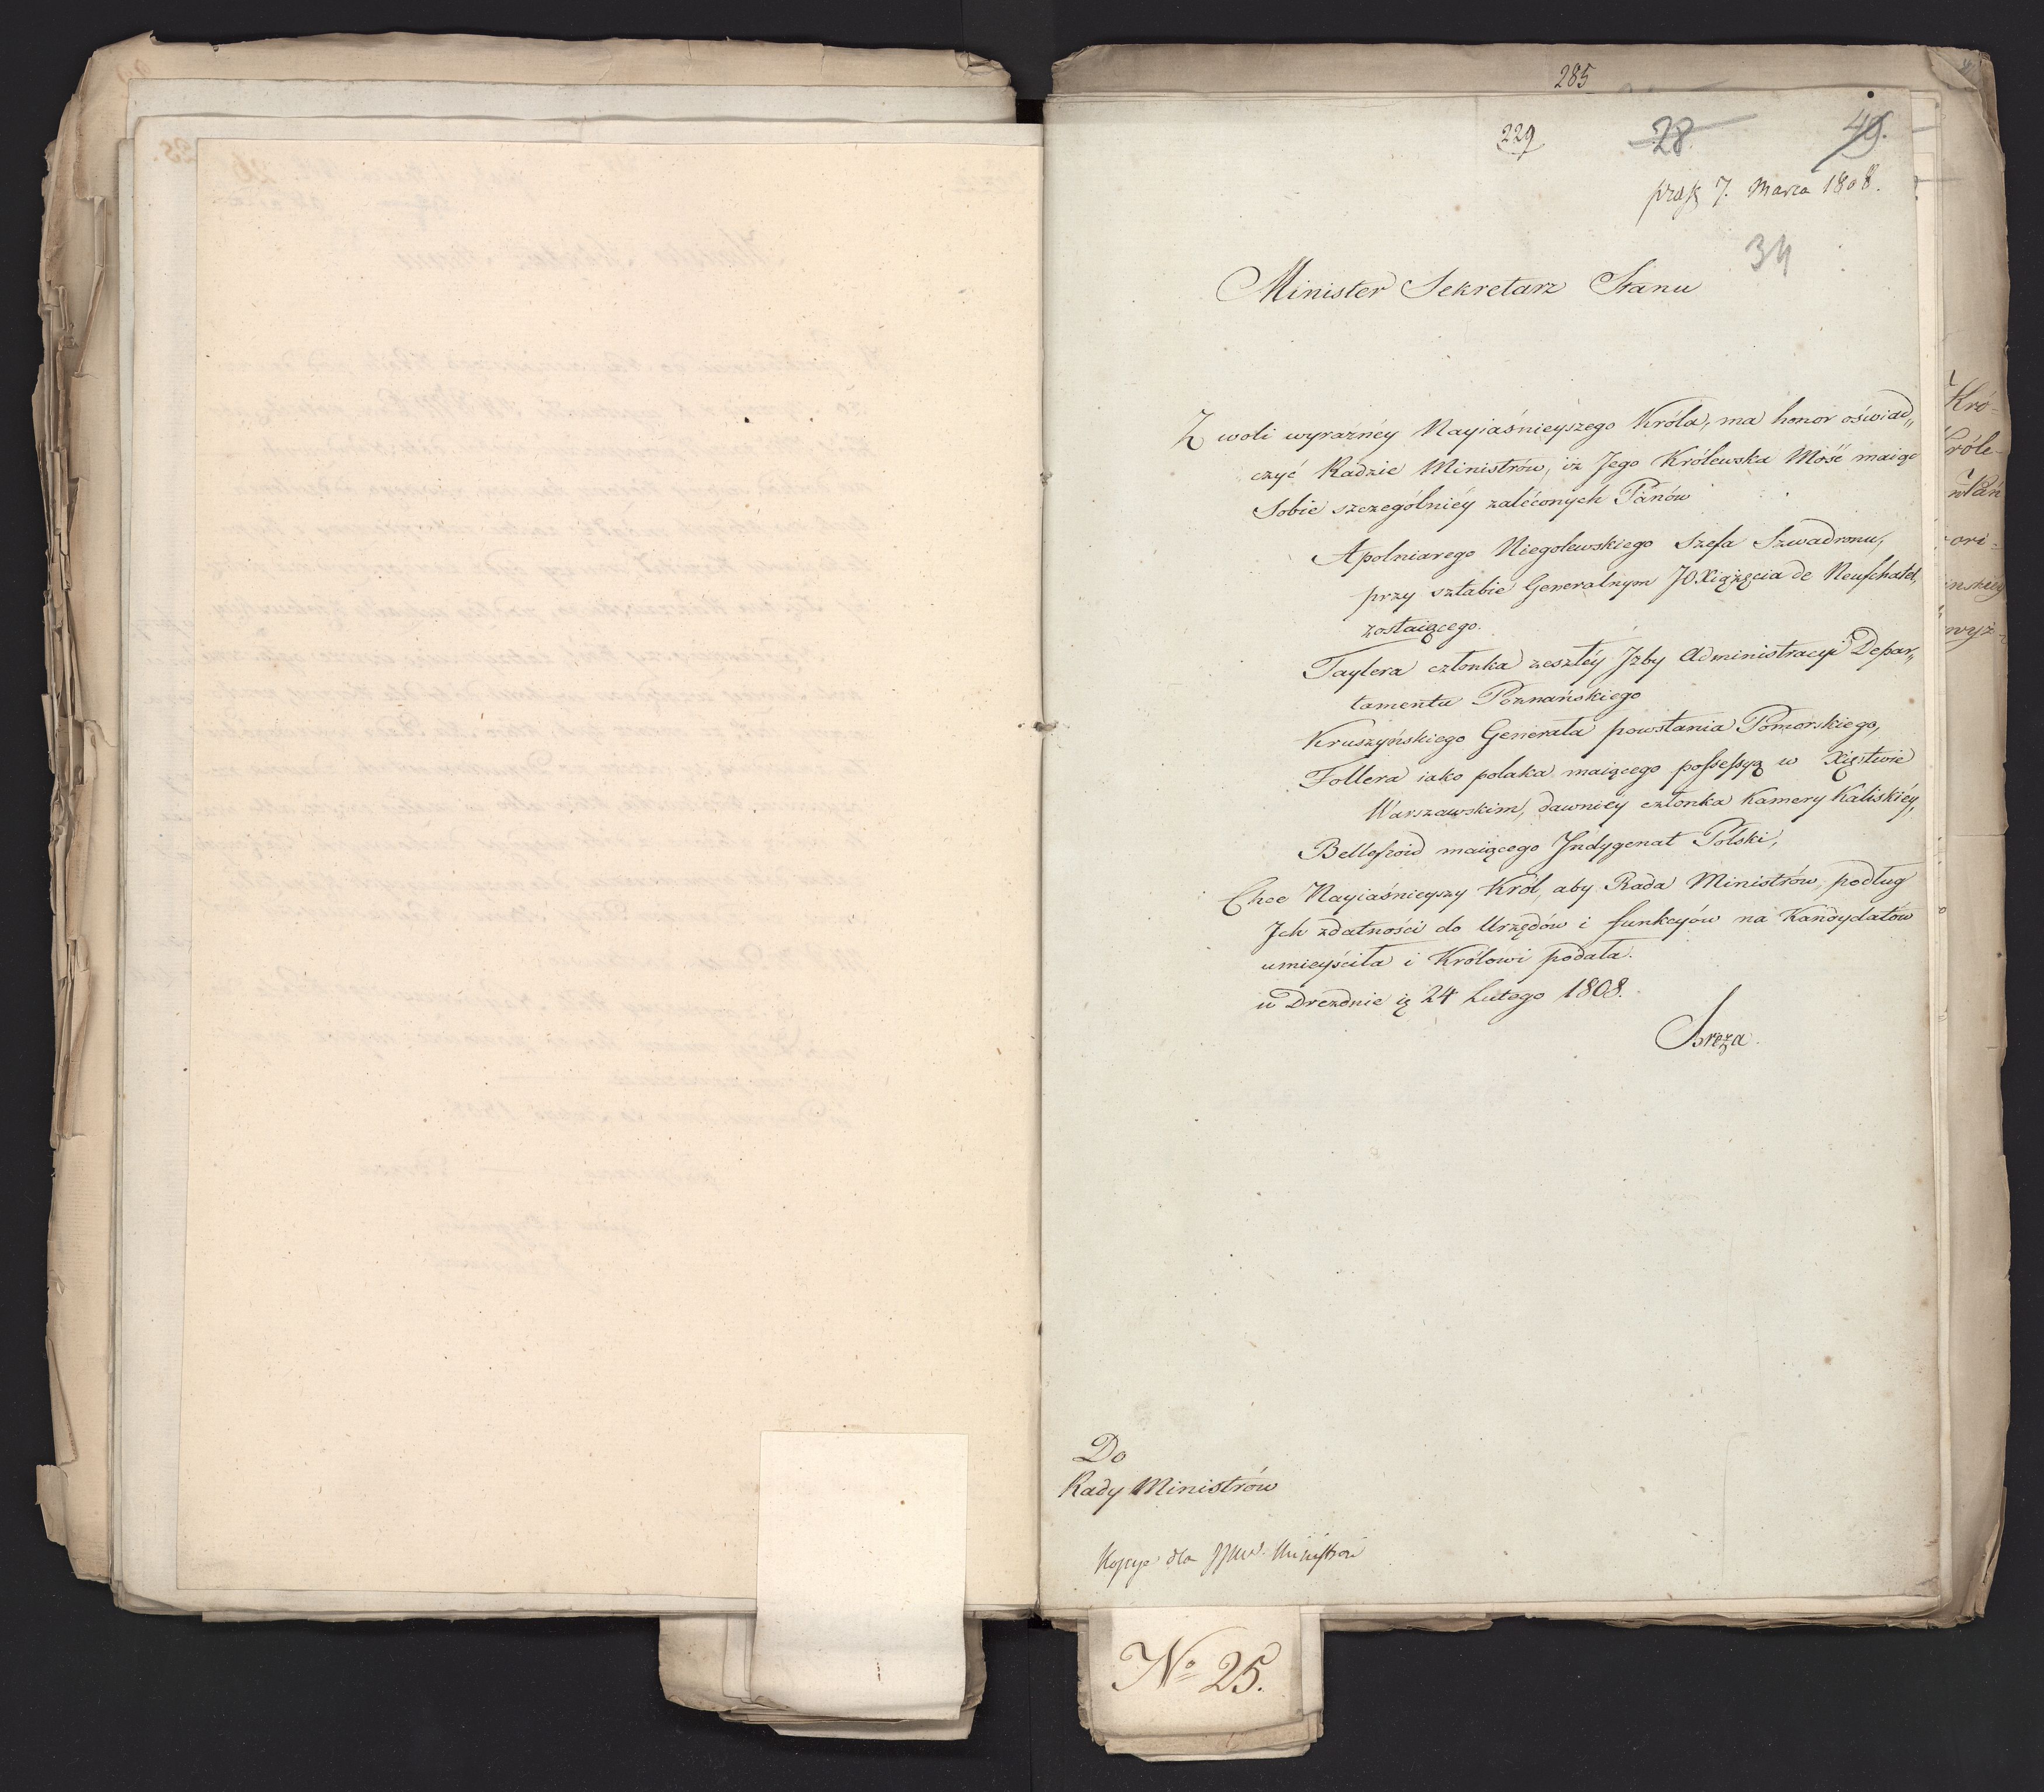 285
229
28.
49.
7. Marca 1808.
34
Minister Sekretarz Stanu
Z woli wyraźnéy Nayiaśnieyszego Króla, ma honor oświad„
czyć Radzie Ministrów, iż Jego Królewska Mość maiąc
Sobie szczególniéy zaléconych Panów
Apolniarego Niegolewskiego Szefa Szwadronu,
przy sztabie Generalnym JOXiążęcia de Neufchatel,
zostaiącego.
Taylera członka zeszłéy Jzby Administracyi Depar„
tamentu Poznańskiego
Kruszyńskiego Generała powstania Pomorskiego,
Follera iako polaka maiącego possessyą w Xięstwie
Warszawskim, dawniéy członka Kamery Kaliskiéy,
Bellefroid maiącego Jndygenat Polski,
Chce Nayiaśnieyszy Król, aby Rada Ministrów, podług
Jch zdatności do Urzędów i funkcyów na Kandydatów
umieyściła i Królowi podała.
w Dreznie 24 Lutego 1808.
Breza.
Do
Rady Ministrów
Kopye dla JJWW. Ministrów
No 25.
Kró-
króle-